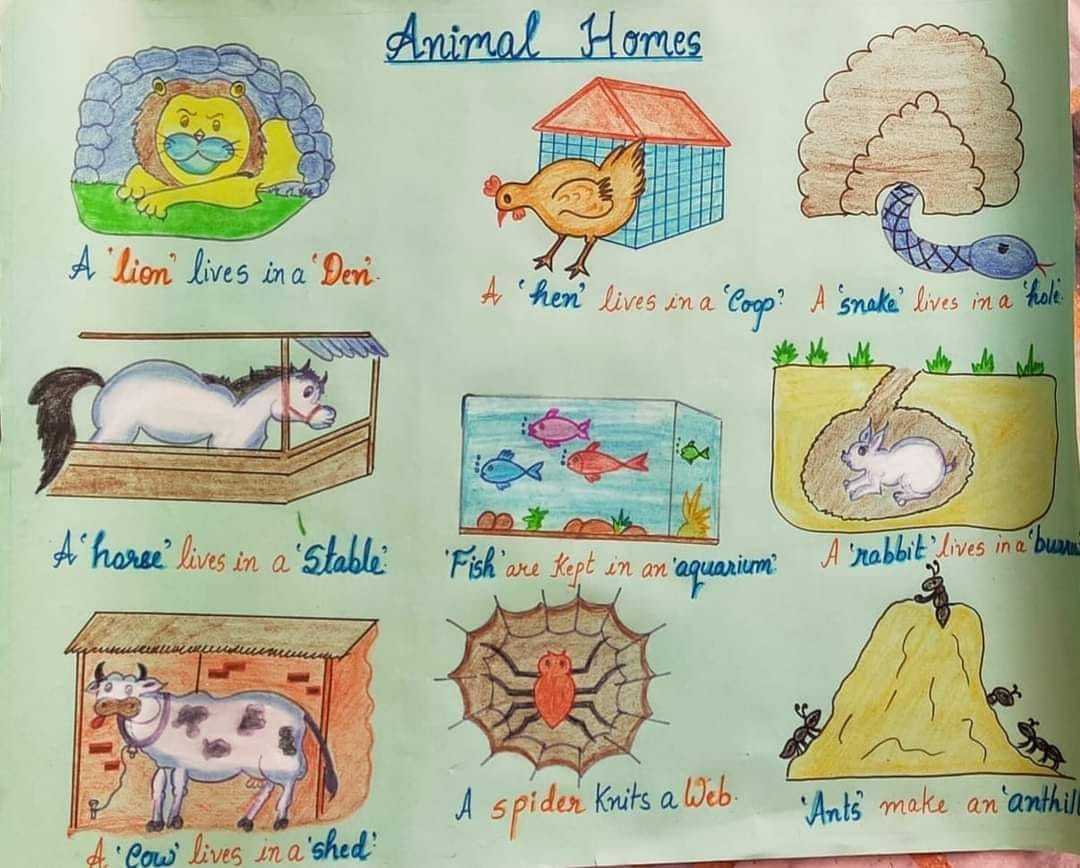 Animal Homes
A 'lion' lives in a 'Den'.
A 'hen' lives in a 'Coop'
A 'snake' lives in a 'hole'.
A 'horse' lives in a 'Stable'.
'Fish' are kept in an 'aquarium'.
A 'rabbit' lives in a
A 'Cow' lives in a 'shed'.
A spider Knits a Web.
'Ants' make an 'anthill